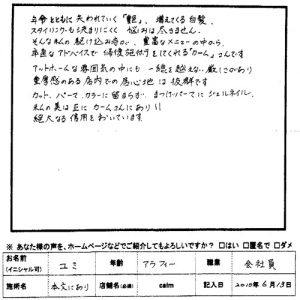 年令とともに失われていく「艶」、増えてくる白髪、
スタイリングも決まりにくく 悩みは尽きません。
そんな私の駆け込み寺が、豊富なメニューの中から、
卒直なアドバイスで 修復施術をしてくれる「カーム」さんです
アットホームな雰囲気の中にも 一線を越えない厳しさがあり
重厚感のある店内での居心地は 抜群です
カット、パーマ、カラーに留まらず、まつげパーマに ジェルネイル、
私の美は正に カームさんにあり!!
絶大なる信用を おいています
※ あなた様の声を、ホームページなどでご紹介してもよろしいですか? □はい □匿名で □ダメ
お名前(イニシャル可) ユミ 年齢 アラフィー 職業 会社員
施術名 本文にあり 店舗名(必須) calm 記入日 2010年6月13日